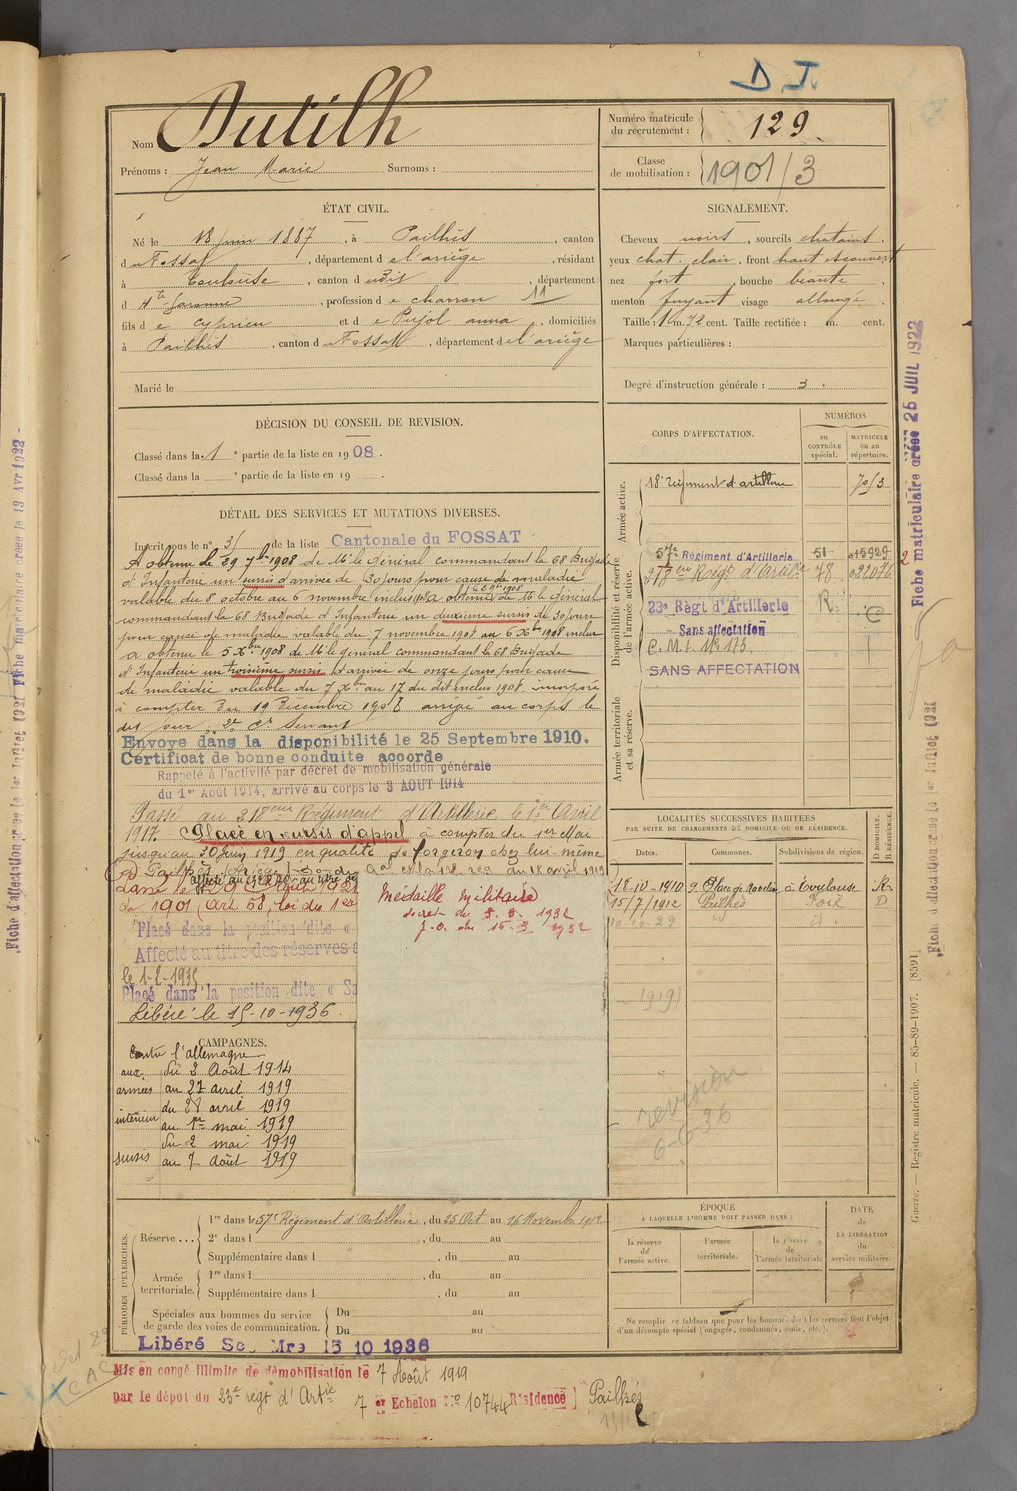 D J.
Nom Dutilh
Prénoms : Jean Marie Surnoms :
Numéro matricule du recrutement : 129.
Classe de mobilisation : 1901/3
ÉTAT CIVIL.
Né le 13 juin 1887, à Pailhès, canton
du Fossat, département de l'ariège, résidant
à Toulouse, canton d udit, département
d Hte-Garonne, profession de charron 11
fils de Cyprien et de Pujol anna, domiciliés
à Pailhès, canton du Fossat, département de l'ariège
Marié le
SIGNALEMENT.
Cheveux noirs, sourcils chatains.
yeux chat. clair, front haut et couvert
nez fort, bouche béante.
menton fuyant visage allongé.
Taille : 1 m. 72 cent. Taille rectifiée : m. cent.
Marques particulières :
Degré d'instruction générale : 3.
DÉCISION DU CONSEIL DE REVISION.
Classé dans la 1e partie de la liste en 1908.
Classé dans la e partie de la liste en 19 .
DÉTAIL DES SERVICES ET MUTATIONS DIVERSES.
Inscrit sous le n° 31 de la liste Cantonale du FOSSAT
A obtenu le 29 7bre 1908 de Mr le général commandant la 68 Brigade
d'Infanterie un sursis d'arrivée de 30 jours pour cause de maladie
valable du 8 octobre au 6 novembre inclus a obtenu de Mr le général
commandant la 68 Brigade d'Infanterie un deuxième sursis de 30 jours
pour cause de maladie valable du 7 novembre 1908 au 6 Xbre 1908 inclus
a obtenu le 5 Xbre 1908 de Mr le général commandant la 68 Brigade
d'Infanterie un troisième sursis d'arrivée de onze jours pour cause
de maladie valable du 7 Xbre au 17 du dit inclus 1908. incorporé
à compter du 19 Décembre 1908 arrivé au corps le
dit jour. 2e Cr Servant
Envoyé dans la disponibilité le 25 Septembre 1910.
Certificat de bonne conduite accordé
Rappelé à l'activité par décret de mobilisation générale
du 1er Août 1914, arrivé au corps le 3 AOUT 1914
Passé au 218eme Régiment d'Artillerie le 1er Avril
1917. Placé en sursis d'appel à compter du 1er Mai
jusqu'au 30 juin 1919 en qualité de forgeron chez lui-même
à Pailhès
de 1901 (Art 58, loi du 1er
Médaille militaire
décret du
J.O. du 1932
Placé dans la position dite «
Affecté au titre des réserves
le 1-2-1935
Placé dans la position dite « S
Libéré le 15-10-1936.
CORPS D'AFFECTATION.
NUMÉROS
au CONTRÔLE spécial.
MATRICULE ou au répertoire.
Armée active.
18e régiment d'artillerie
Disponibilité et réserve de l'armée active.
57e Régiment d'Artillerie 51 015929
218eme Régt d'Artillie 78 022076
23e Régt d'Artillerie R.
Sans affectation
C. M. I. No 173.
SANS AFFECTATION
Armée territoriale et sa réserve.
LOCALITÉS SUCCESSIVES HABITÉES
PAR SUITE DE CHANGEMENTS DE DOMICILE OU DE RÉSIDENCE.
Dates. Communes. Subdivisions de région. D DOMICILE. R RÉSIDENCE.
18-10-1910 à Toulouse R.
15/7/1912 Pailhès Foix D
10-10-29 id
(1919)
revision
6-6-36
CAMPAGNES.
Contre l'allemagne
aux armées du 2 Août 1914
au 27 avril 1919
intérieur du 28 avril 1919
au 1er mai 1919
sursis du 2 mai 1919
au 7 Août 1919
PÉRIODES D'EXERCICES.
Réserve... 1re dans le 57e Régiment d'Artillerie, du 25 Oct au 16 Novembre 1912
2e dans l , du au
Supplémentaire dans l , du au
Armée territoriale. 1re dans l , du au
Supplémentaire dans l , du au
Spéciales aux hommes du service de garde des voies de communication. Du au
Du au
ÉPOQUE
À LAQUELLE L'HOMME DOIT PASSER DANS :
la réserve de l'armée active.
l'armée territoriale.
la réserve de l'armée territoriale
DATE de LA LIBÉRATION du service militaire.
Ne remplir ce tableau que pour les hommes dont les services font l'objet
d'un décompte spécial (engagés, condamnés, omis, etc.).
Libéré 15 10 1936
Mis en congé illimité de démobilisation le 7 Août 1919
par le dépôt du 23e régt d'Artie 7 er Echelon No 10744 Résidence Pailhès
Fiche matriculaire créée 25 JUIL 1922
Fiche d'affectation créée le 1er Juillet 1921
Guerre. — Registre matricule. — 85-89-1907. [8591]
Fiche d'affectation créée le 1er Juillet 1921 Fiche matriculaire créée le 13 Avr 1922